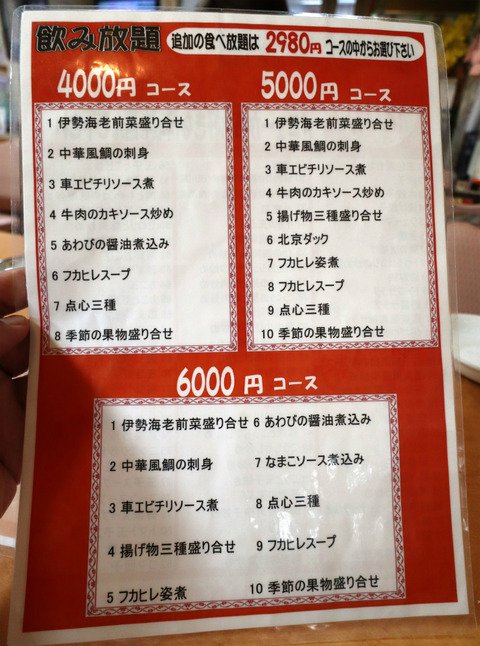 飲み放題 追加の食べ放題は 2980円 コースの中からお選び下さい
4000円 コース
1 伊勢海老前菜盛り合せ
2 中華風鯛の刺身
3 車エビチリソース煮
4 牛肉のカキソース炒め
5 あわびの醤油煮込み
6 フカヒレスープ
7 点心三種
8 季節の果物盛り合せ
5000円 コース
1 伊勢海老前菜盛り合せ
2 中華風鯛の刺身
3 車エビチリソース煮
4 牛肉のカキソース炒め
5 揚げ物三種盛り合せ
6 北京ダック
7 フカヒレ姿煮
8 フカヒレスープ
9 点心三種
10 季節の果物盛り合せ
6000 円 コース
1 伊勢海老前菜盛り合せ
2 中華風鯛の刺身
3 車エビチリソース煮
4 揚げ物三種盛り合せ
5 フカヒレ姿煮
6 あわびの醤油煮込み
7 なまこソース煮込み
8 点心三種
9 フカヒレスープ
10 季節の果物盛り合せ